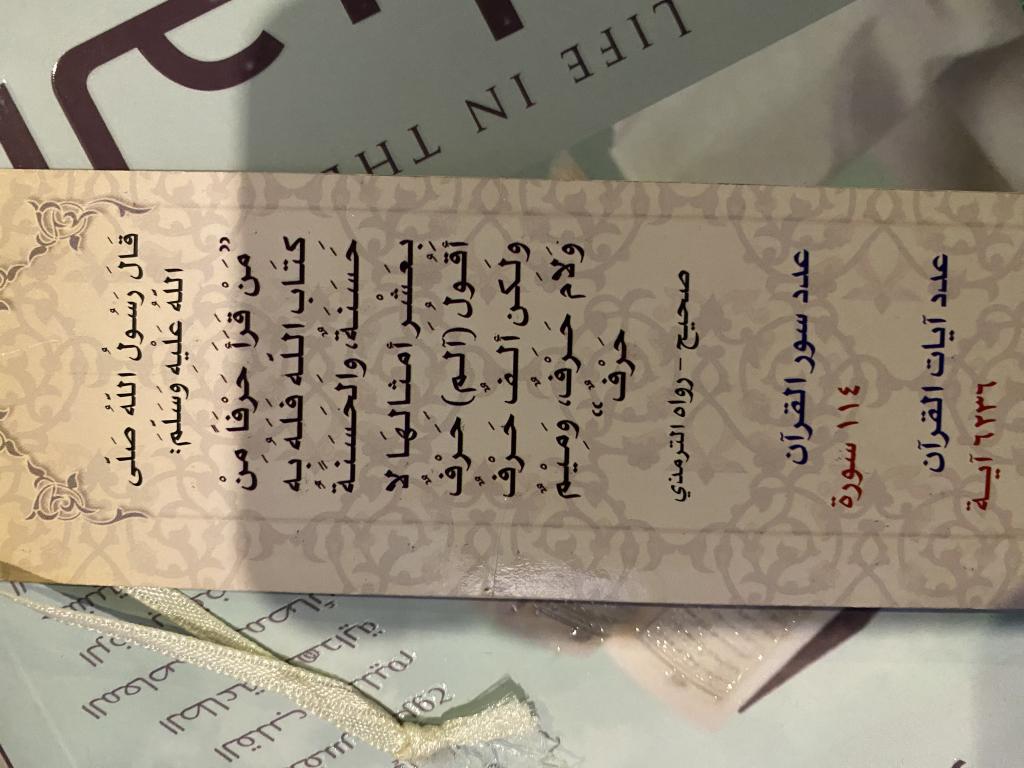 قَالَ رَسُولُ اللّهُ صَلّى
اللّهُ عَلَيْهِ وَسَلّمَ:
”مَنْ قَرَأَ حَرْفًا مِنْ
كتَاب اللّه فَلَهُ به
حَسَنَةٌ، والحَسَنةُ
بعَشْر أمثالهَا لا
أقُول (آلم) حَرْفٌ
ولَكن ألفٌ حَرْفٌ
وَلَامٌ حَرْفٌ، وَمِيْمٌ
حَرْفٌ“
صحيح - رواه الترمذي
عدد سور القرآن
١١٤ سورة
عدد آيات القرآن
٦٢٣٦ آيـة
LIFE IN THE